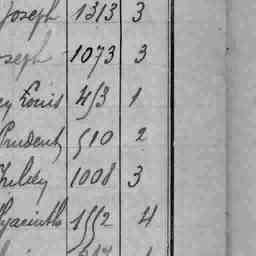 Joseph 1313 3
oseph 1073 3
ey Louis 453 1
Prudent 510 2
1008 3
Hyacinthe 1552 4